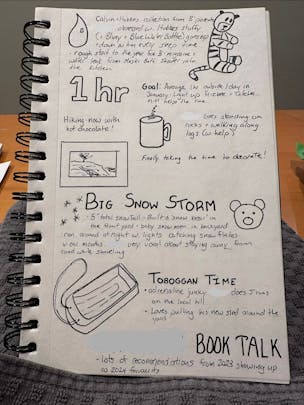 Calvin + Hobbes collection from 5
obsessed w. Hobbes stuffy
(+ Bluey + Blue Water Bottle)
down with every sleep time
- rough start to the year for
water leak from shower into
the kitchen
1 hr
Goal: Average 1 hr outside/day in
January.
not help the time
Hiking - now with
hot chocolate!
Goes standing on
rocks + walking along
logs (w help)
Finally taking the time to decorate!
BIG SNOW STORM
.5" total snowfall - Built a snow bear in
the front yard - baby snowmen in backyard
ran around at night w. lights catching snow flakes
very vocal about staying away from
TOBOGGAN TIME
- adrenaline junky does J runs
on the local hill
- Loves pulling his new sled around the
yard
BOOK TALK
- lots of recommendations from 2023 showing up
as 2024 favourites